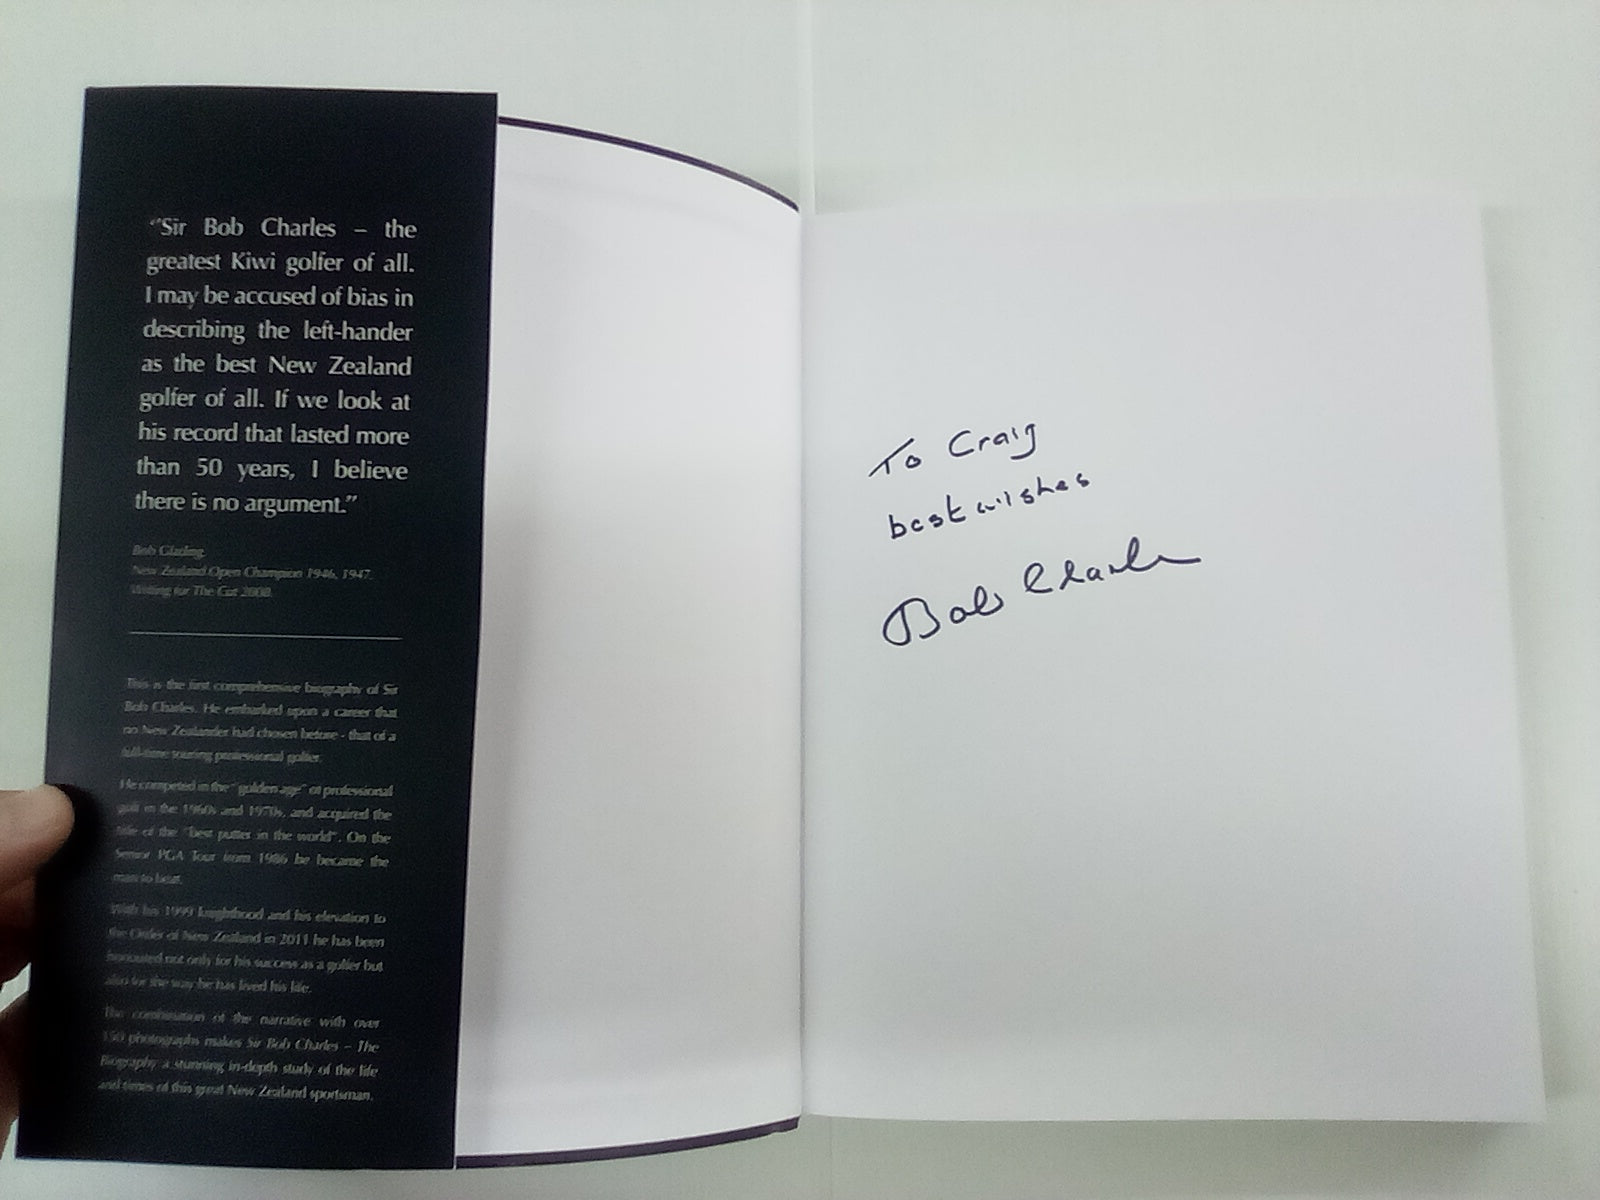 “Sir Bob Charles – the
greatest Kiwi golfer of all.
I may be accused of bias in
describing the left-hander
as the best New Zealand
golfer of all. If we look at
his record that lasted more
than 50 years, I believe
there is no argument.”
Bob Glading,
New Zealand Open Champion 1946, 1947.
Writing for The Cut 2000.
This is the first comprehensive biography of Sir
Bob Charles. He embarked upon a career that
no New Zealander had chosen before - that of a
full-time touring professional golfer.
He competed in the "golden age" of professional
golf in the 1960s and 1970s, and acquired the
title of the "best putter in the world". On the
Senior PGA Tour from 1986 he became the
man to beat.
With his 1999 knighthood and his elevation to
the Order of New Zealand in 2011 he has been
honoured not only for his success as a golfer but
also for the way he has lived his life.
The combination of the narrative with over
150 photographs makes Sir Bob Charles – The
Biography a stunning in-depth study of the life
and times of this great New Zealand sportsman.
To Craig
best wishes
Bob Charles